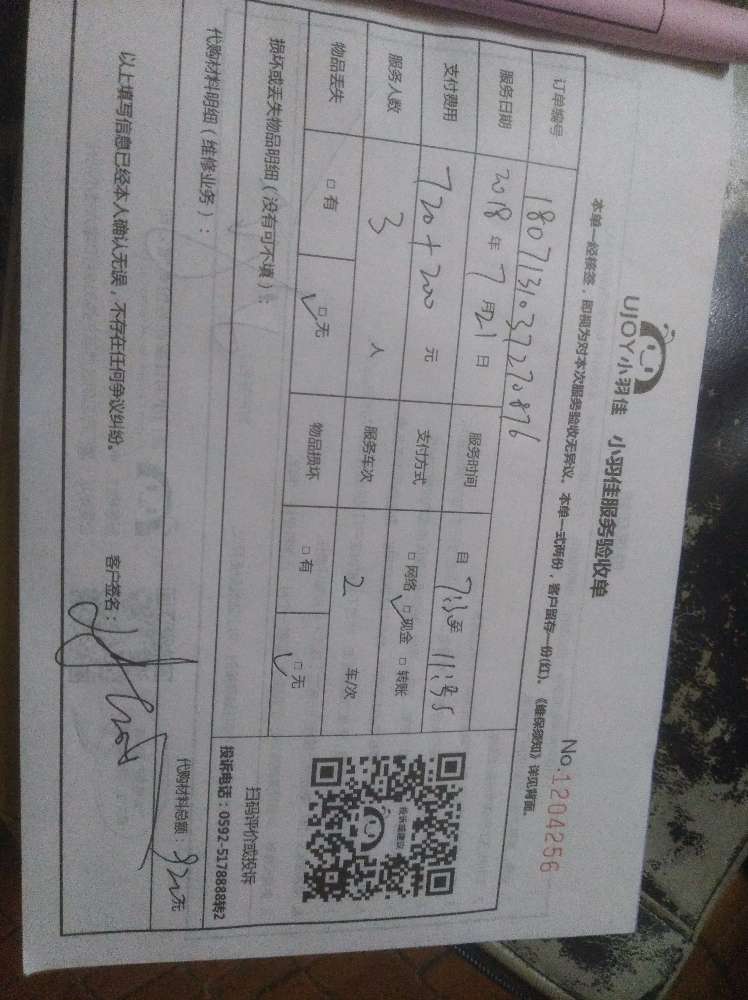 UJOY小羽佳 小羽佳服务验收单
No.1204256
本单一经接签，即视为对本次服务验收无异议。本单一式两份，客户留存一份(红)。《维保须知》详见背面。
订单编号 18071310372270876
服务日期 2018年7月21日 服务时间 自 至
支付费用 720+200元 支付方式 □网络 □现金 □转账
服务人数 3人 服务车次 2车/次
物品丢失 □有 □无 物品损坏 □有 □无
损坏或丢失物品明细（没有可不填）：
投诉或建议
扫码评价或投诉
投诉电话：0592-5178888转2
代购材料明细（维修业务）：
代购材料总额： 元
以上填写信息已经本人确认无误，不存在任何争议纠纷。 客户签名：